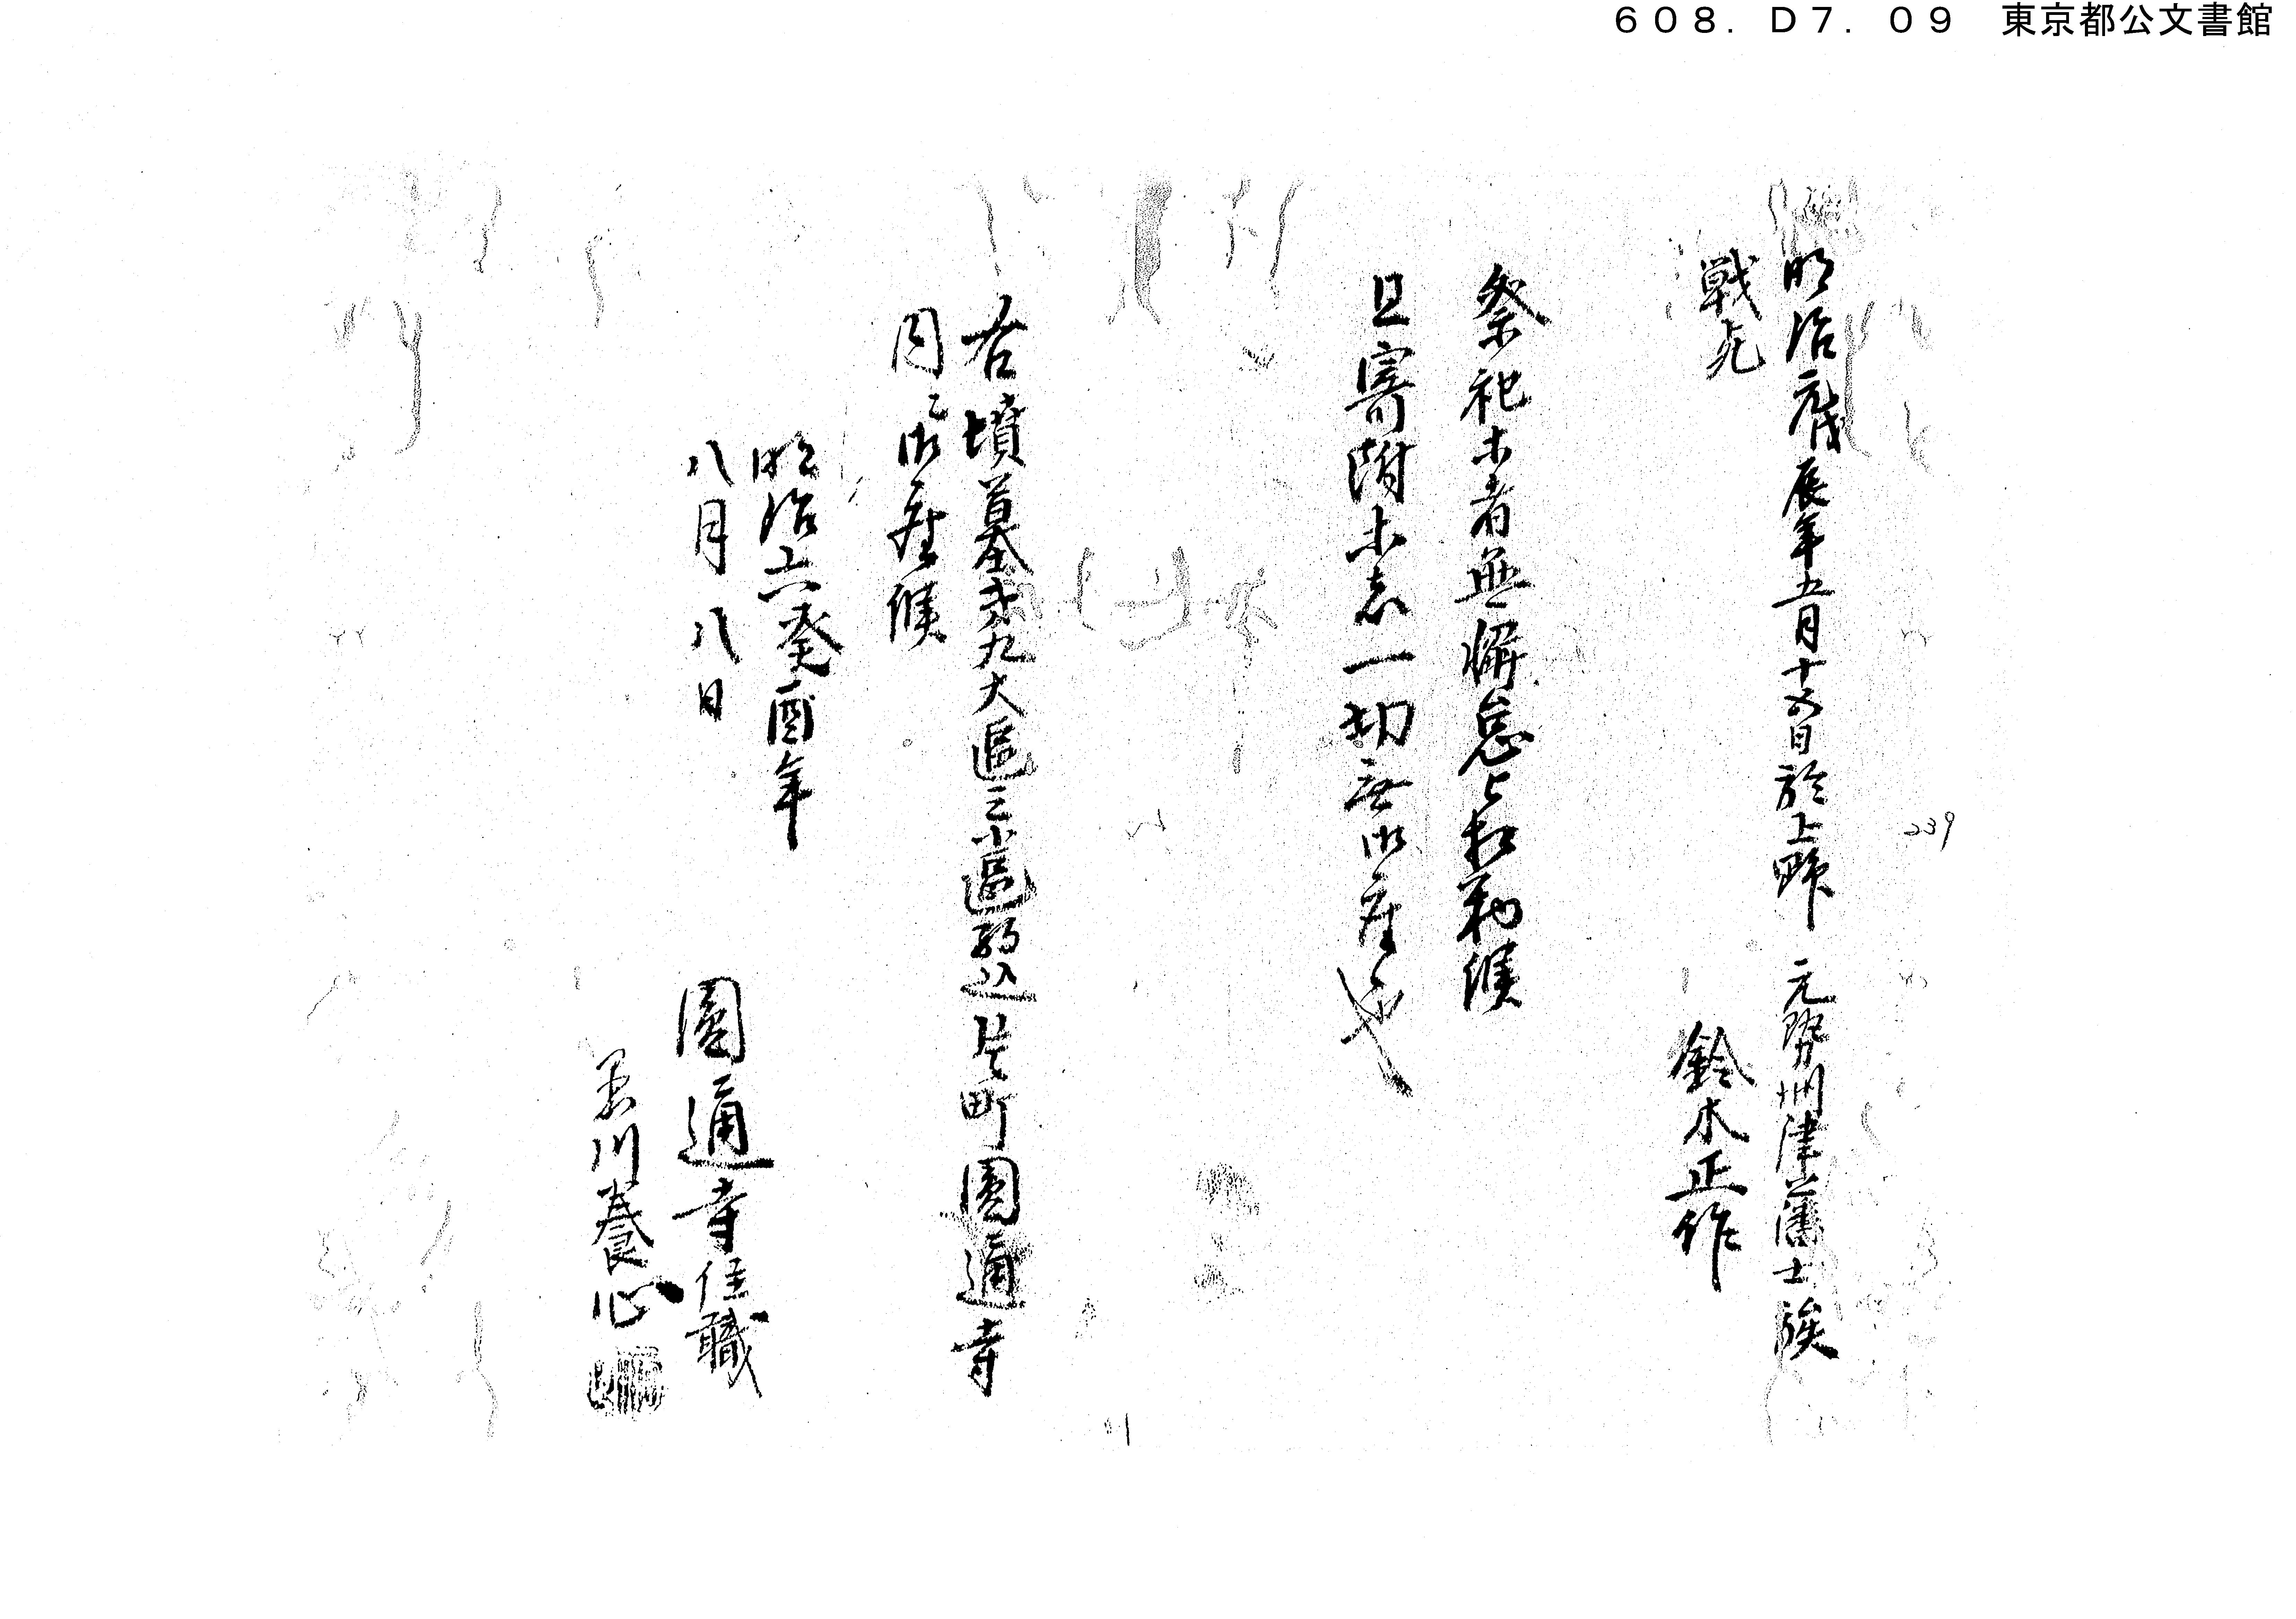 608. D7. 09 東京都公文書館
239
明治元戊辰年五月十五日於上野
戦死
元勢州津藩士族
鈴木正作
祭祀等者無懈怠相勤候
且寄附等之一切無御座候
右墳墓第九大區三小區駒込片町圓通寺
同御座候
明治六癸酉年
八月八日
圓通寺住職
黒川養心